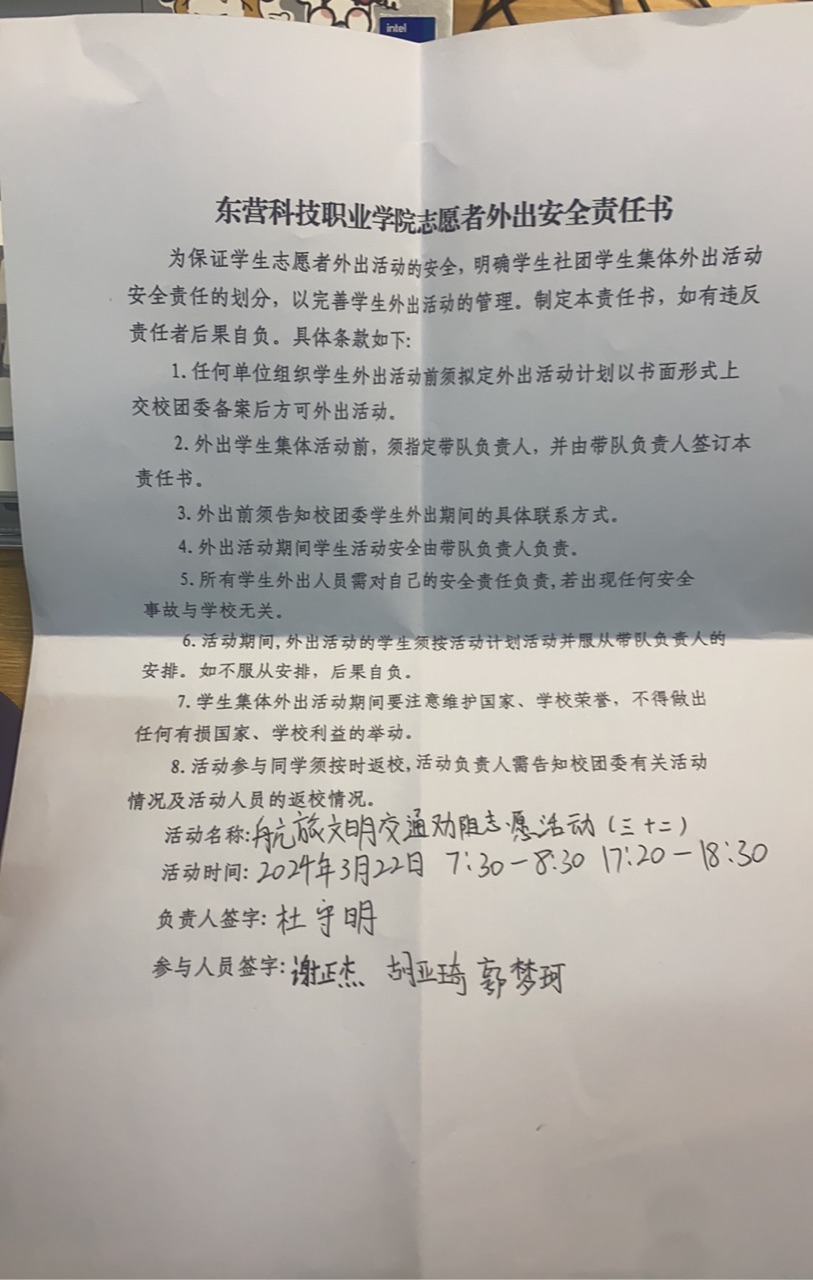 intel
东营科技职业学院志愿者外出安全责任书
为保证学生志愿者外出活动的安全，明确学生社团学生集体外出活动
安全责任的划分，以完善学生外出活动的管理。制定本责任书，如有违反
责任者后果自负。具体条款如下:
1.任何单位组织学生外出活动前须拟定外出活动计划以书面形式上
交校团委备案后方可外出活动。
2.外出学生集体活动前，须指定带队负责人，并由带队负责人签订本
责任书。
3.外出前须告知校团委学生外出期间的具体联系方式。
4.外出活动期间学生活动安全由带队负责人负责。
5.所有学生外出人员需对自己的安全责任负责,若出现任何安全
事故与学校无关。
6.活动期间,外出活动的学生须按活动计划活动并服从带队负责人的
安排。如不服从安排，后果自负。
7.学生集体外出活动期间要注意维护国家、学校荣誉，不得做出
任何有损国家、学校利益的举动。
8.活动参与同学须按时返校,活动负责人需告知校团委有关活动
情况及活动人员的返校情况。
活动名称:航旅文明交通劝阻志愿活动(三十二)
活动时间:2024年3月22日 7:30-8:30 17:20-18:30
负责人签字:杜守明
参与人员签字:谢正杰 胡亚琦 郭梦珂